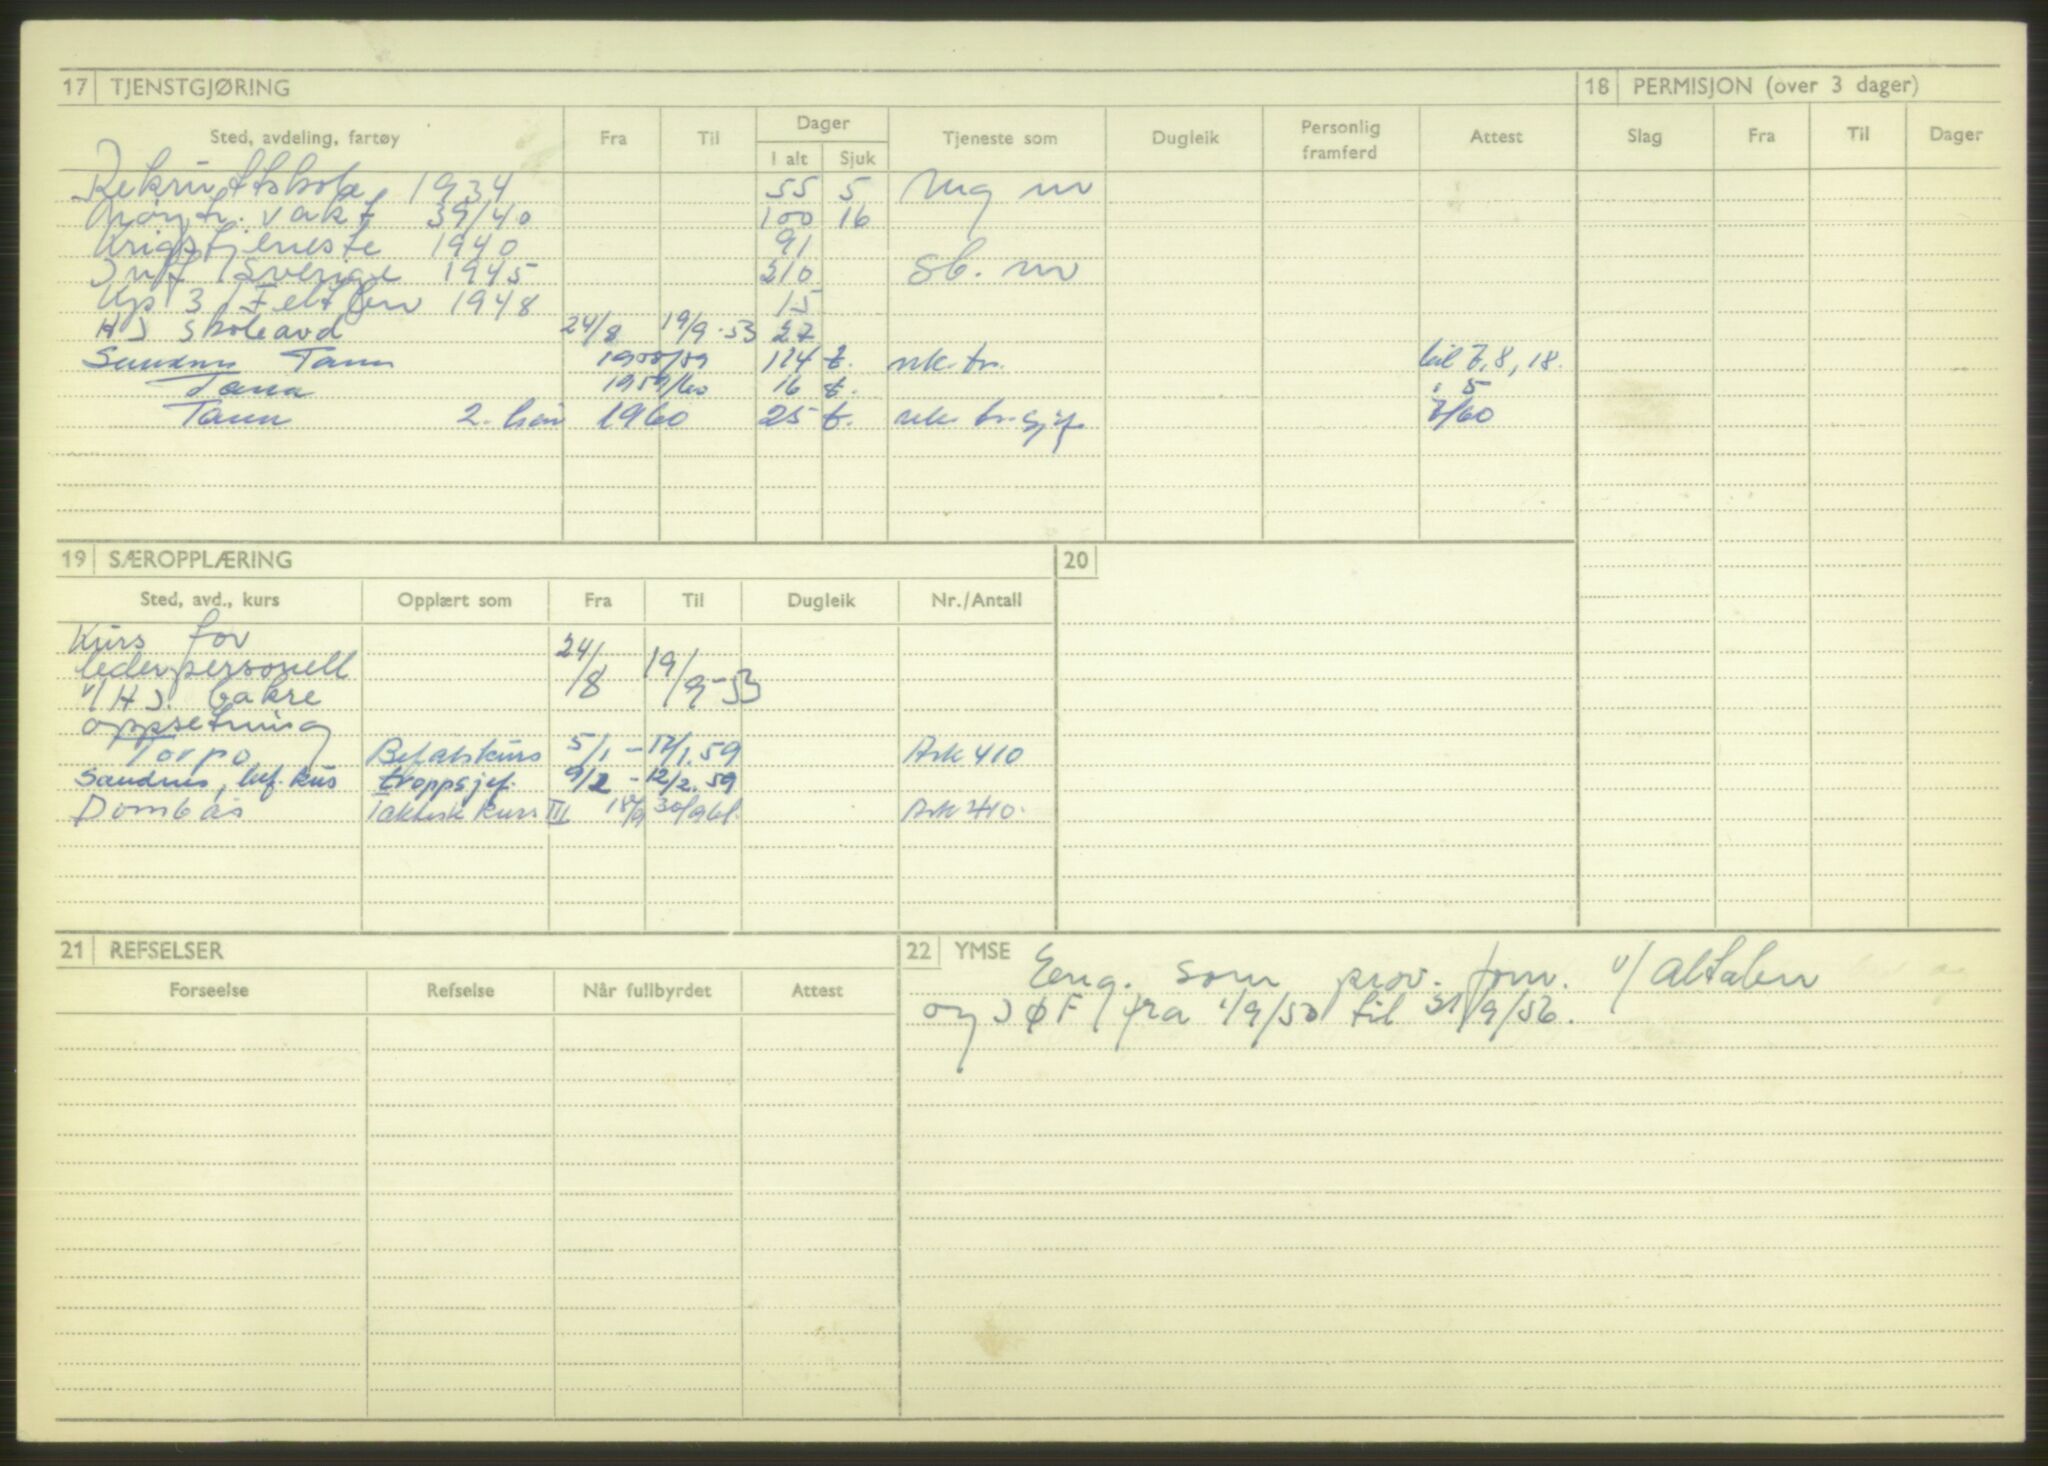 17 TJENSTGJØRING
18 PERMISJON (over 3 dager)
Sted, avdeling, fartøy Fra Til Dager Tjeneste som Dugleik Personlig framferd Attest
I alt Sjuk
Slag Fra Til Dager
Rekruttskole 1934 55 5 Mg m
Nøytr. vakt 39/40 100 16
Krigstjeneste 1940 91
Inf i Sverige 1945 210 Sb. m
Kp 3 1948 15
HV Skoleavd 24/8 19/9-53 27
Sandnes Tana 114 t. bil 7, 8, 18.
Tana 1959/60 16 t. " 5
Tana 2. 1960 25 t. 7/60
19 SÆROPPLÆRING
20
Sted, avd., kurs Opplært som Fra Til Dugleik Nr./Antall
Kurs for
lederpersonell 24/8 19/9-53
v/ HV. bakre
oppsetning
Torpo Befalskurs 5/1 - 17/1.59 Ark 410
Sandnes, bef. kurs troppsjef. 9/2 - 12/2.59
Dombås Taktisk kurs III 18/9 30/961. Ark 410.
21 REFSELSER
22 YMSE
Forseelse Refselse Når fullbyrdet Attest
Eng. som prov. forv. v/ Altabn
og JØF fra 1/9/53 til 31/9/56.